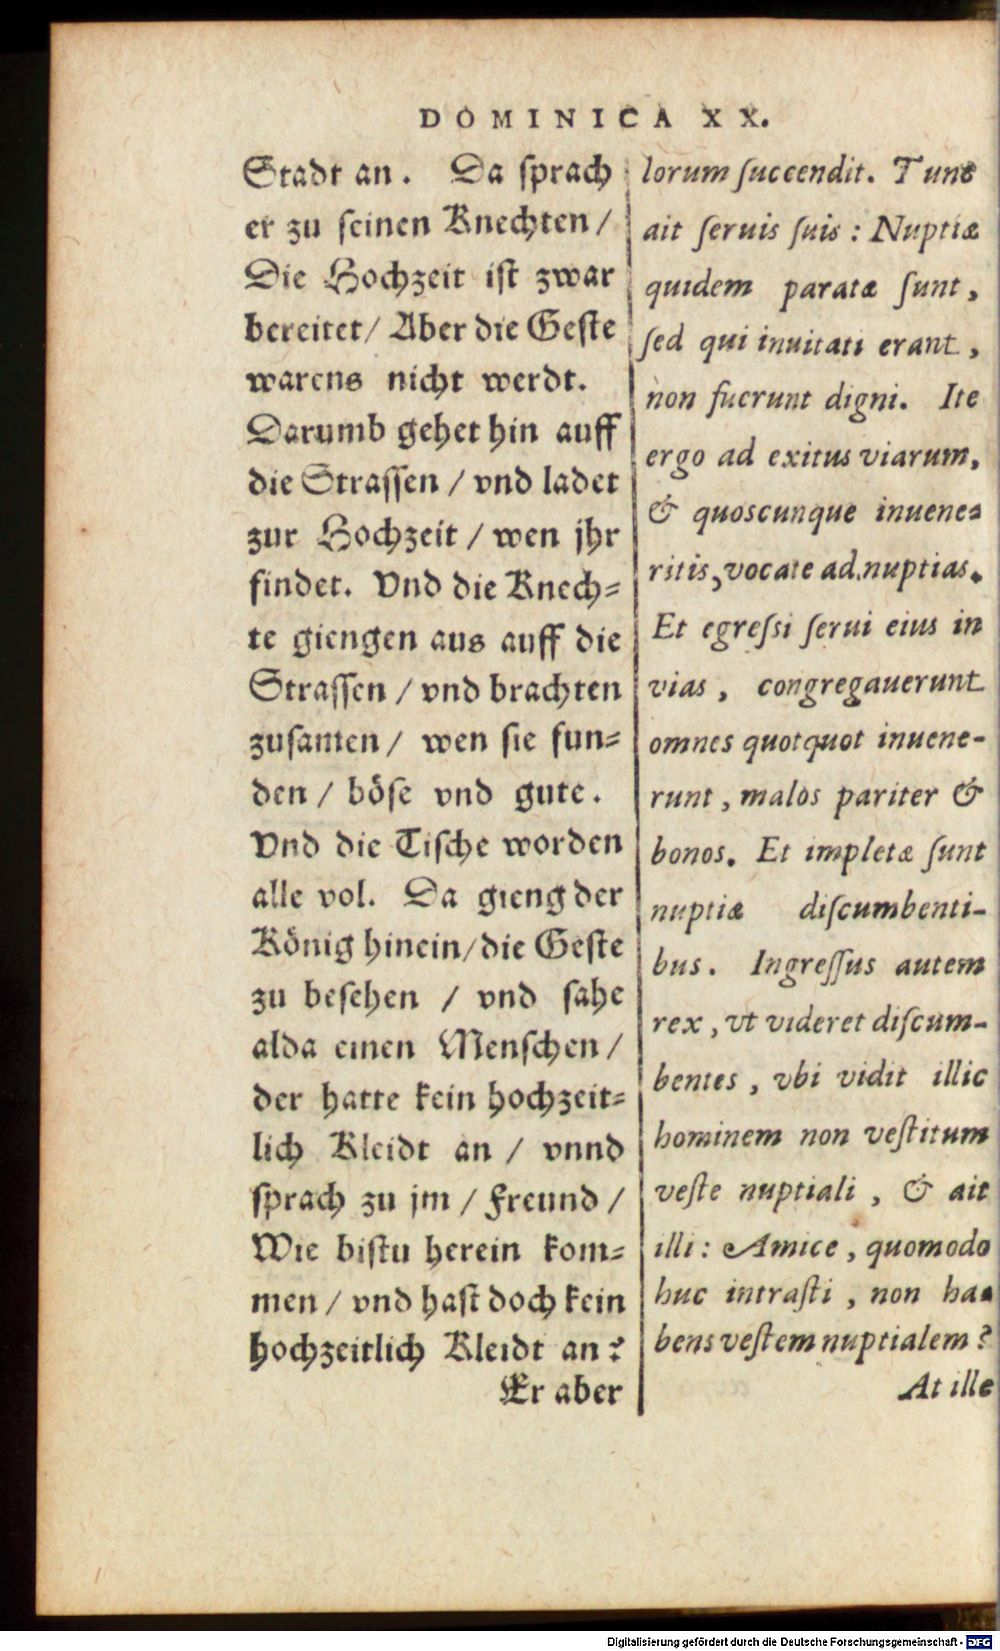 DOMINICA XX.
Stadt an. Da ſprach
er zu ſeinen Knechten /
Die Hochzeit iſt zwar
bereitet / Aber die Geſte
warens nicht werdt.
Darumb gehet hin auff
die Straſſen / vnd ladet
zur Hochzeit / wen jhr
findet. Vnd die Knech⸗
te giengen aus auff die
Straſſen / vnd brachten
zuſamen / wen ſie fun⸗
den / böſe vnd gute.
Vnd die Tiſche worden
alle vol. Da gieng der
König hinein / die Geſte
zu beſehen / vnd ſahe
alda einen Menſchen /
der hatte kein hochzeit⸗
lich Kleidt an / vnnd
ſprach zu jm / Freund /
Wie biſtu herein kom⸗
men / vnd haſt doch kein
hochzeitlich Kleidt an?
Er aber
lorum ſuccendit. Tunc
ait ſeruis ſuis : Nuptiæ
quidem paratæ ſunt,
ſed qui inuitati erant,
non fuerunt digni. Ite
ergo ad exitus viarum,
& quoscunque inuene-
ritis, vocate ad nuptias.
Et egreſsi ſerui eius in
vias, congregauerunt
omnes quotquot inuene-
runt, malos pariter &
bonos. Et impletæ ſunt
nuptiæ diſcumbenti-
bus. Ingreſſus autem
rex, vt videret diſcum-
bentes, vbi vidit illic
hominem non veſtitum
veſte nuptiali, & ait
illi: Amice, quomodo
huc intraſti, non ha-
bens veſtem nuptialem?
At ille
Digitalisierung gefördert durch die Deutsche Forschungsgemeinschaft - DFG